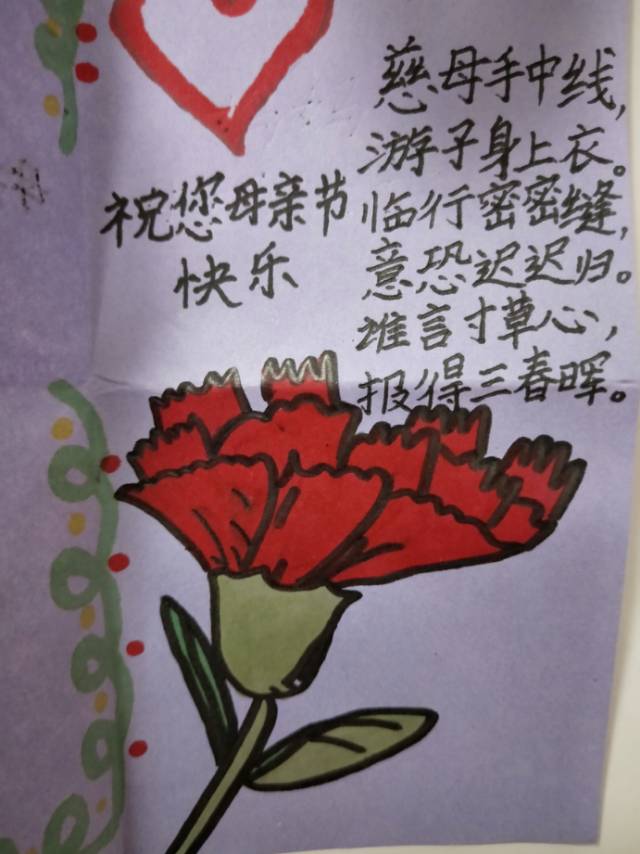 祝您母亲节
快乐
慈母手中线,
游子身上衣。
临行密密缝,
意恐迟迟归。
谁言寸草心,
报得三春晖。